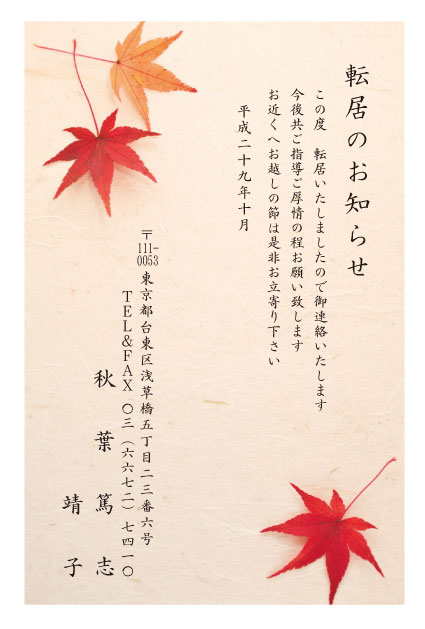 転居のお知らせ
この度　転居いたしましたので御連絡いたします
今後共ご指導ご厚情の程お願い致します
お近くへお越しの節は是非お立寄り下さい
平成二十九年十月
〒111-0053 東京都台東区浅草橋五丁目二三番六号
TEL&FAX 〇三（六六七二）七四一〇
秋葉篤志
靖子